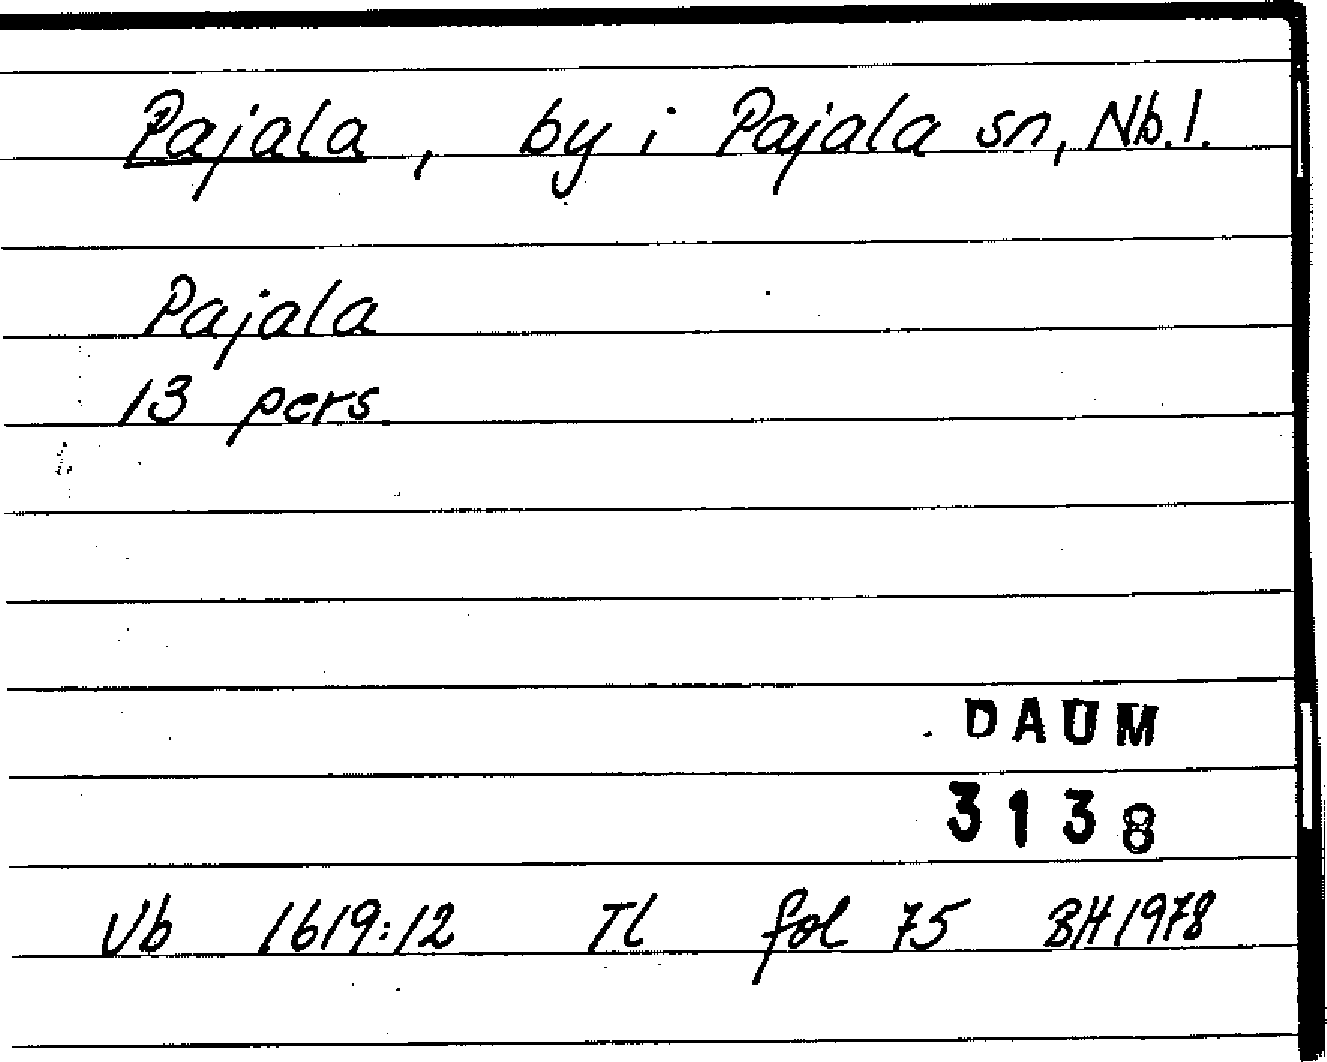 Pajala, by i Pajala sn, Nb.l.
Pajala
13 pers
DAUM
3138
Vb 1619:12 TL fol 75 BH 1978